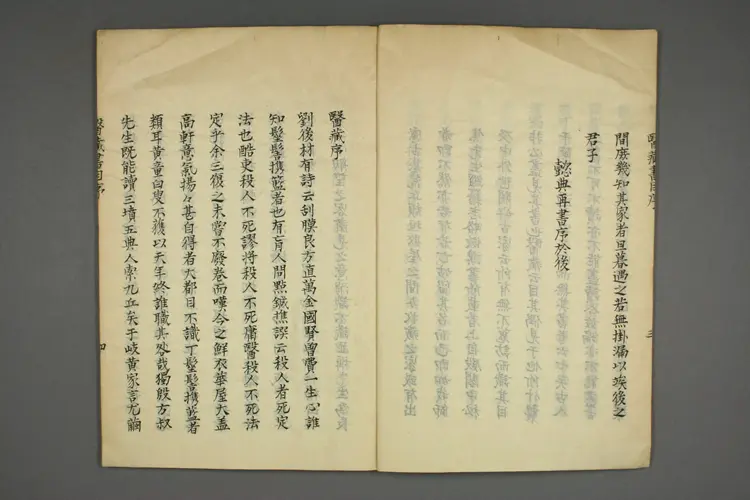 醫藏書目序
三
間庶幾知其家者旦暮遇之若無掛漏以俟後之
君子
懿典再書序於後
醫藏序
劉後村有詩云刮膜良方直萬金國醫曾費一生心誰
知髼髻携籃者也有盲人問點鍼撫誤云殺人者死定
法也酷吏殺人不死謬將殺人不死庸醫殺人不死法
定乎余三復之未嘗不廢卷而嘆今之鮮衣華屋大蓋
高軒意氣揚々甚自得者大都目不識丁髼髻携籃者
類耳黃童白叟不獲以天年終誰職其咎哉獨殷方叔
先生既能讀三墳五典八索九丘矣于岐黃家言尤繭
醫藏書目序
四